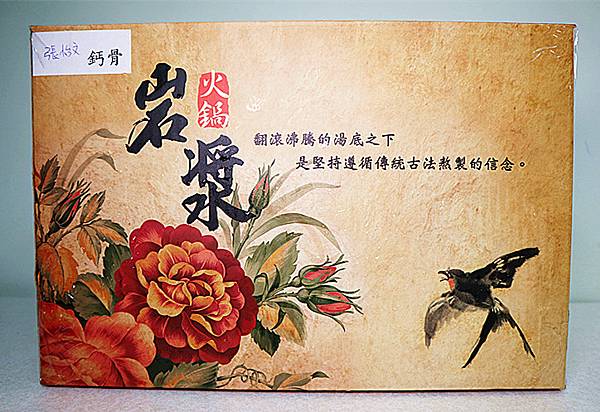 張怡文 鈣骨
岩漿
火鍋
翻滾沸騰的湯底之下
是堅持遵循傳統古法熬製的信念。